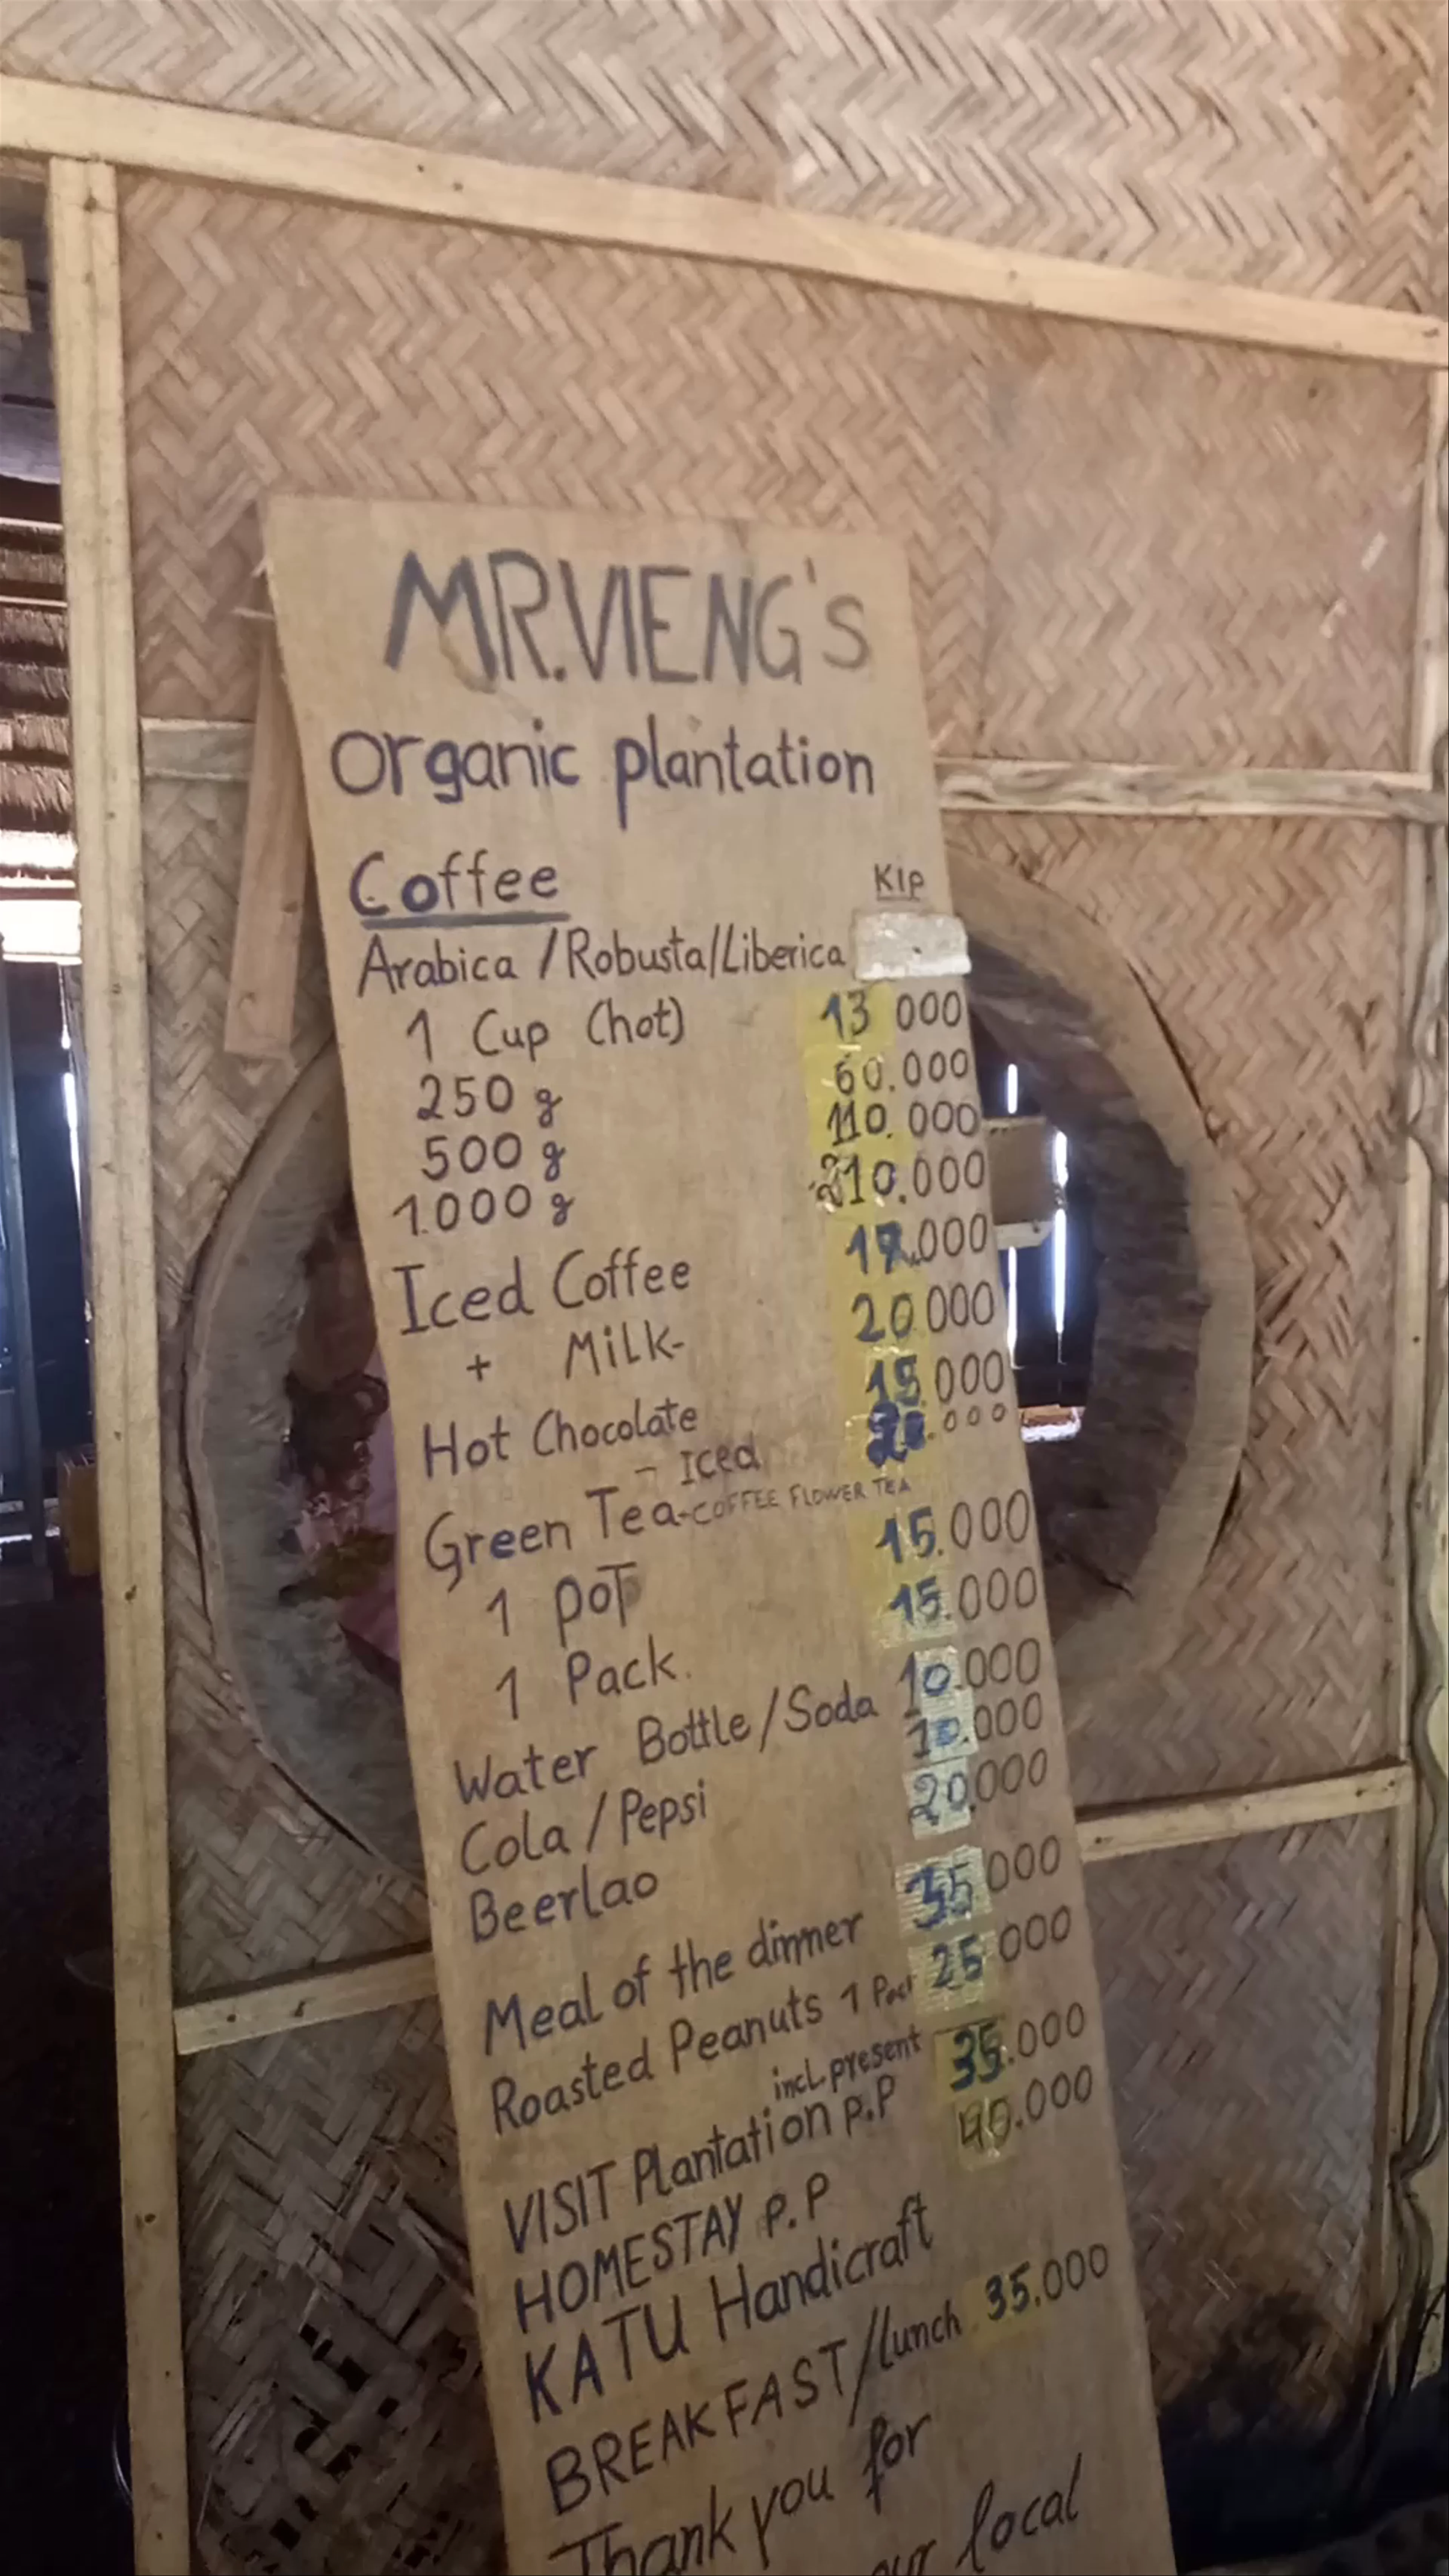 MR.VIENG's
Organic plantation
Coffee KIP
Arabica /Robusta/Liberica
1 Cup (hot) 13 000
250 g 60.000
500 g 110.000
1.000 g 210.000
Iced Coffee 17.000
+ Milk- 20.000
Hot Chocolate 000
- Iced .000
Green Tea-COFFEE FLOWER TEA
1 POT 15.000
1 Pack. 15.000
Water Bottle/Soda 10.000
Cola / Pepsi 10.000
Beerlao 20.000
Meal of the dinner 35 000
Roasted Peanuts 1 Pack 25 000
incl. present
VISIT Plantation P.P 35.000
HOMESTAY P.P 40.000
KATU Handicraft
BREAKFAST/lunch 35.000
Thank you for
local